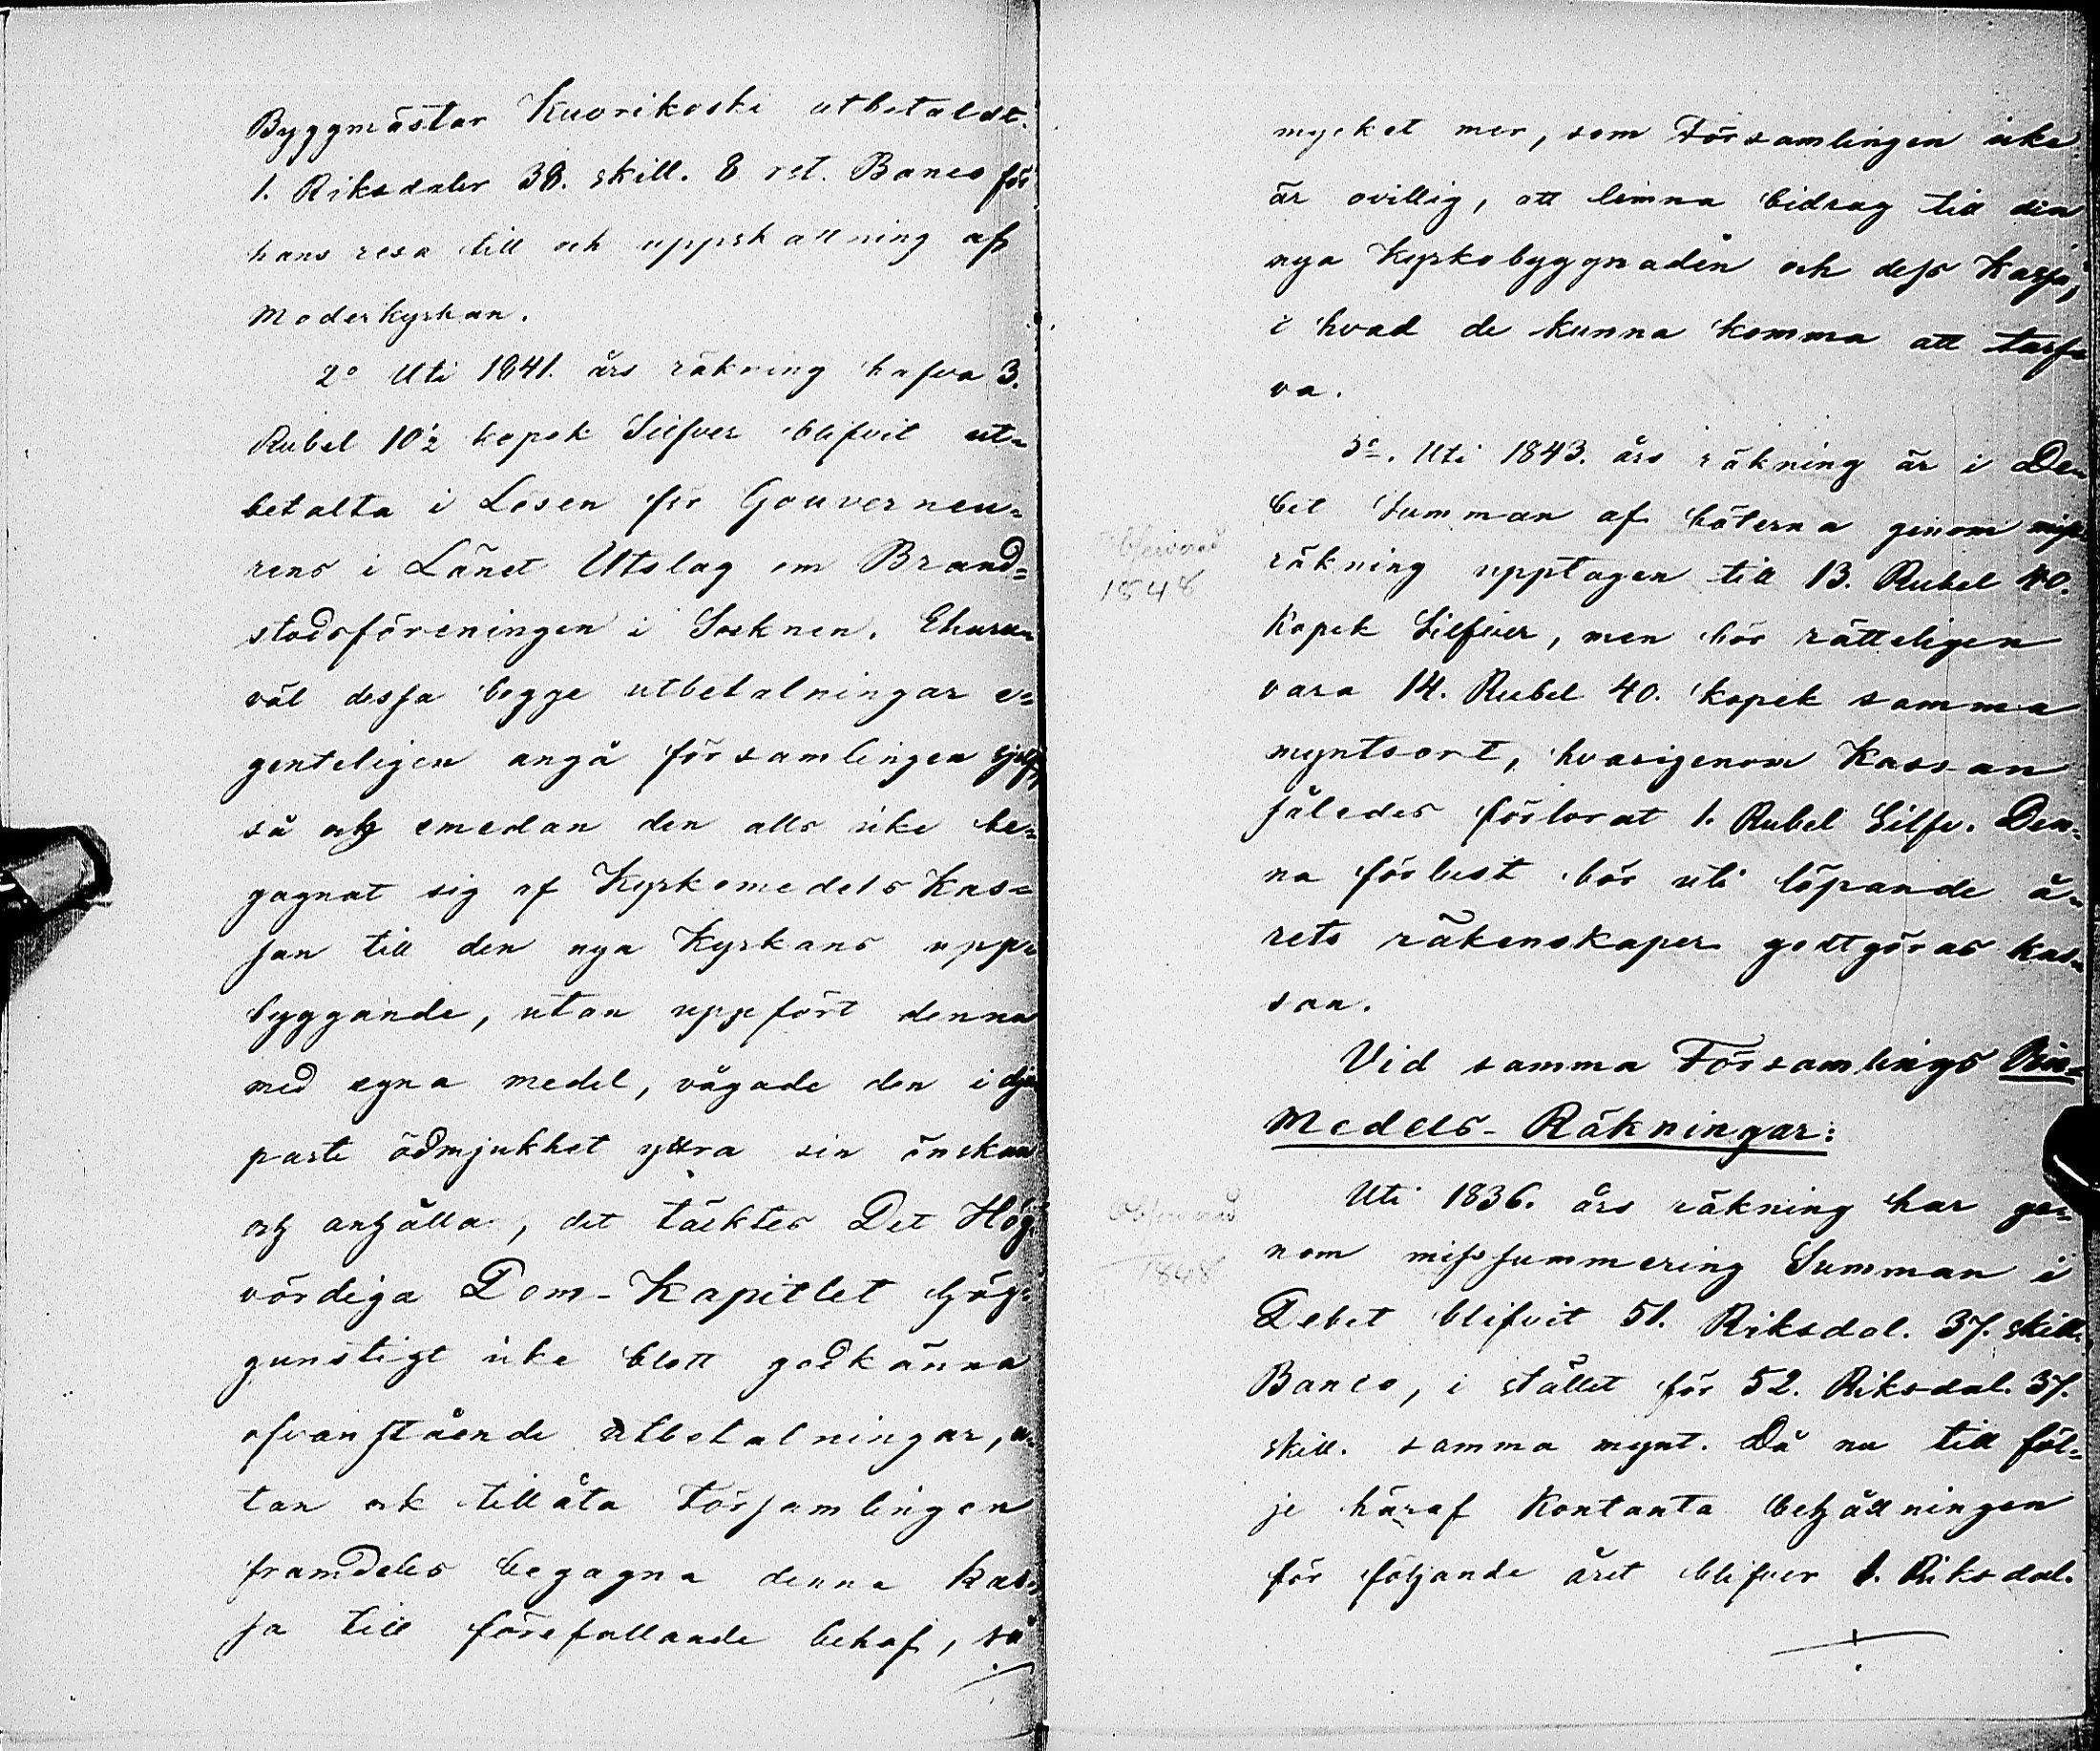 Byggmästar Kuorikoski utbetaldt.
1. Riksdaler 38. skill. 8 rst. Banco för
hans resa till och uppskattning af
Moderkyrkan.
2º Uti 1841. års räkning hafva 3.
Rubel 10½ kopek Silfver blifvit ut=
betalta i Lösen för Gouverneu=
rens i Länet Utslag om Brand=
stodsföreningen i Socknen. Ehuru=
väl dessa begge utbetalningar e=
genteligen angå församlingen sjelf,
så och emedan den alls icke be=
gagnat sig af Kyrkomedels Kas=
san till den nya Kyrkans upp=
byggande, utan uppfört denna
med egna medel, vågade den i dju
paste ödmjukhet yttra sin önskan
och anhålla, det täcktes Det Hög=
vördiga Dom-Kapitlet hög=
gunstigt icke blott godkänna
ofvanstående utbetalningar, u=
tan ock tillåta Församlingen
framdeles begagna denna kas=
sa till förefallande behof, så
mycket mer, som Församlingen icke
är ovillig, att lemna bidrag till den
nya Kyrkobyggnaden och dess Kassa,
i hvad de kunna komma att tarf=
va.
3º. Uti 1843. års räkning är i De=
bet Summan af böterna genom miss=
räkning upptagen till 13. Rubel 40.
Kopek Silfver, men bör rätteligen
vara 14. Rubel 40. kopek samma
myntsort, hvarigenom Kassan
således förlorat 1. Rubel Silfv. Den=
na förlust bör uti löpande å=
rets räkenskaper godtgöras kas=
san.
Observerad
1848
Vid samma Församlings Bin=
Medels-Räkningar:
Uti 1836. års räkning har ge=
nom missummering Summan i
Debet blifvit 51. Riksdal. 37. skill.
Banco, i stället för 52. Riksdal. 37.
skill. samma mynt. Då nu till föl=
je häraf Kontanta behållningen
för följande året blifver 1. Riksdal.
Observerad
1848